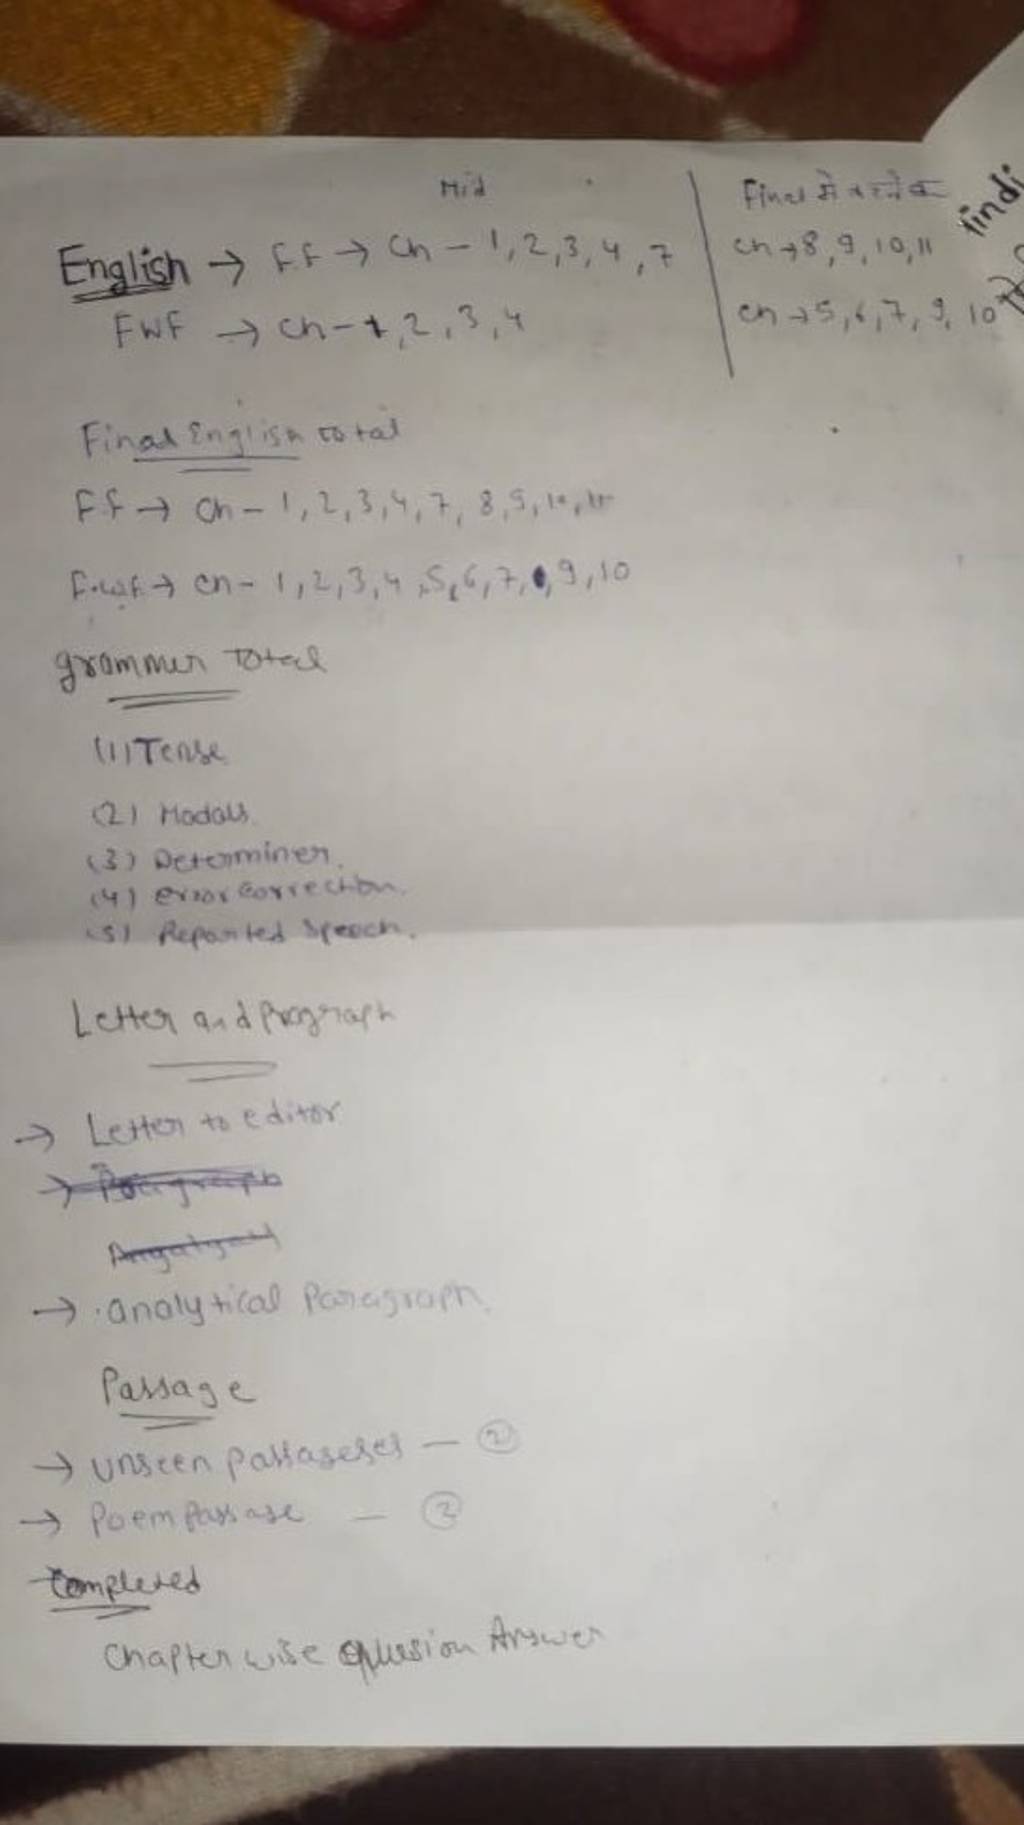 Mid
Final में
English → F.F → Ch - 1, 2, 3, 4, 7
ch → 8, 9, 10, 11
FWF → Ch - 1, 2, 3, 4
ch → 5, 6, 7, 9, 10
Hindi
Final English total
F.F → Ch - 1, 2, 3, 4, 7, 8, 9, 10, 11
F.W.F. → Ch - 1, 2, 3, 4, 5, 6, 7, 9, 10
grammer Total
(1) Tense
(2) Modals
(3) Determiner.
(4) error correction.
(5) Reported Speech.
Letter and Pragraph
→ Letter to editor
→ Paragraph
→ analytical Paragraph.
Passage
→ unseen passageses — 2
→ Poem Passase — 2
Completed
Chapter wise Quesion Answer